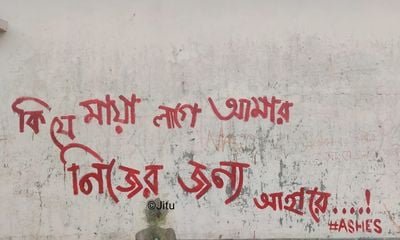 কি যে মায়া লাগে আমার
নিজের জন্য আহারে....!
#ASHES
©Jitu